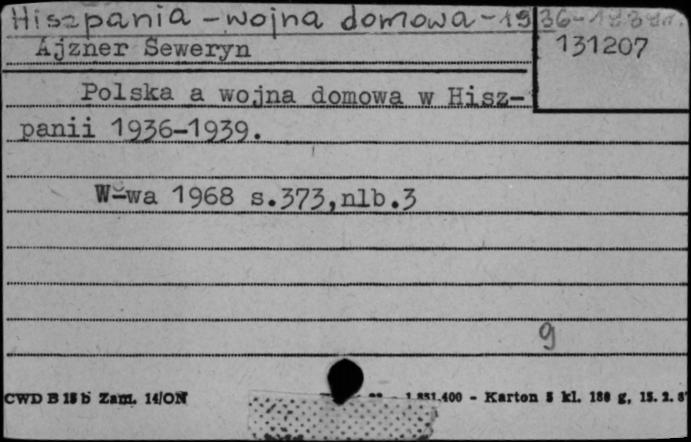 Hiszpania - wojna domowa - 1936-1939r.
Ajzner Seweryn
131207
Polska a wojna domowa w Hisz-
panii 1936-1939.
W-wa 1968 s.373,nlb.3
9
CWD B 15 b Zam. 14/ON 1.851.400 - Karton 5 kl. 180 g, 15. 2. 6